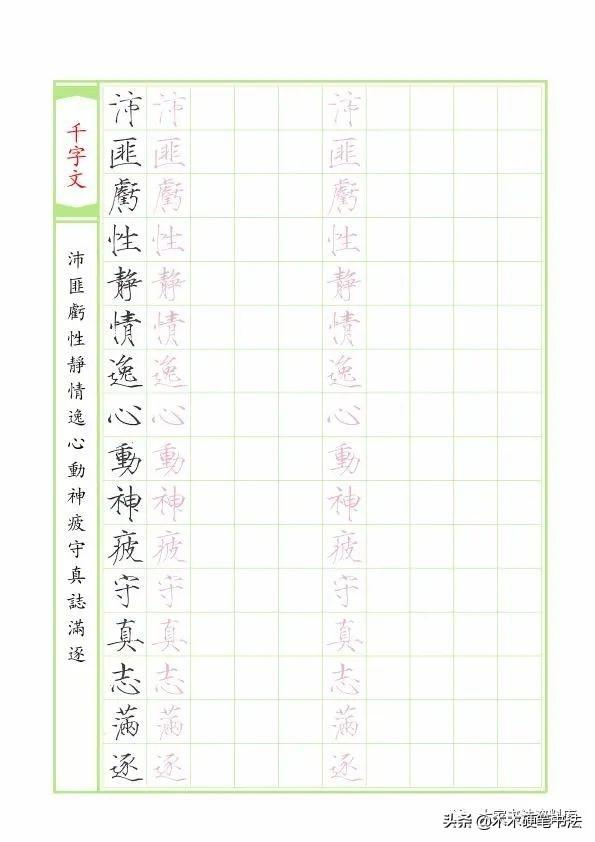 千字文
沛匪虧性靜情逸心動神疲守真誌滿逐
沛沛沛
匪匪匪
虧虧虧
性性性
静静静
情情情
逸逸逸
心心心
動動動
神神神
疲疲疲
守守守
真真真
志志志
滿滿滿
逐逐逐
头条 @木木硬笔书法